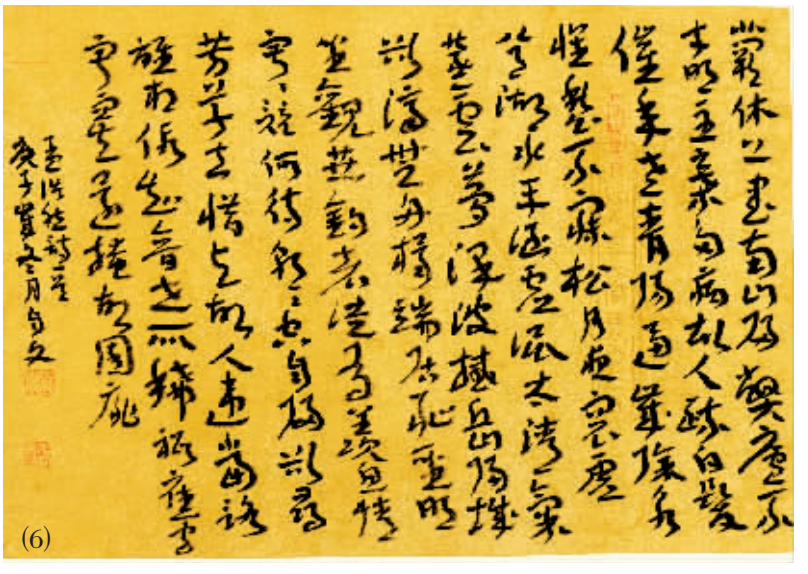 北闕休上書南山歸敝廬不
才明主棄多病故人疏白髮
催年老青陽逼歲除永
懷愁不寐松月夜窗虛
八月湖水平涵虛混太清氣
蒸雲夢澤波撼岳陽城
欲濟無舟楫端居恥聖明
坐觀垂釣者徒有羨魚情
寂〻竟何待朝〻空自歸欲尋
芳草去惜與故人違當路
誰相假知音世所稀祇應守
寂寞還掩故園扉
孟浩然詩
庚子歲冬月
(6)